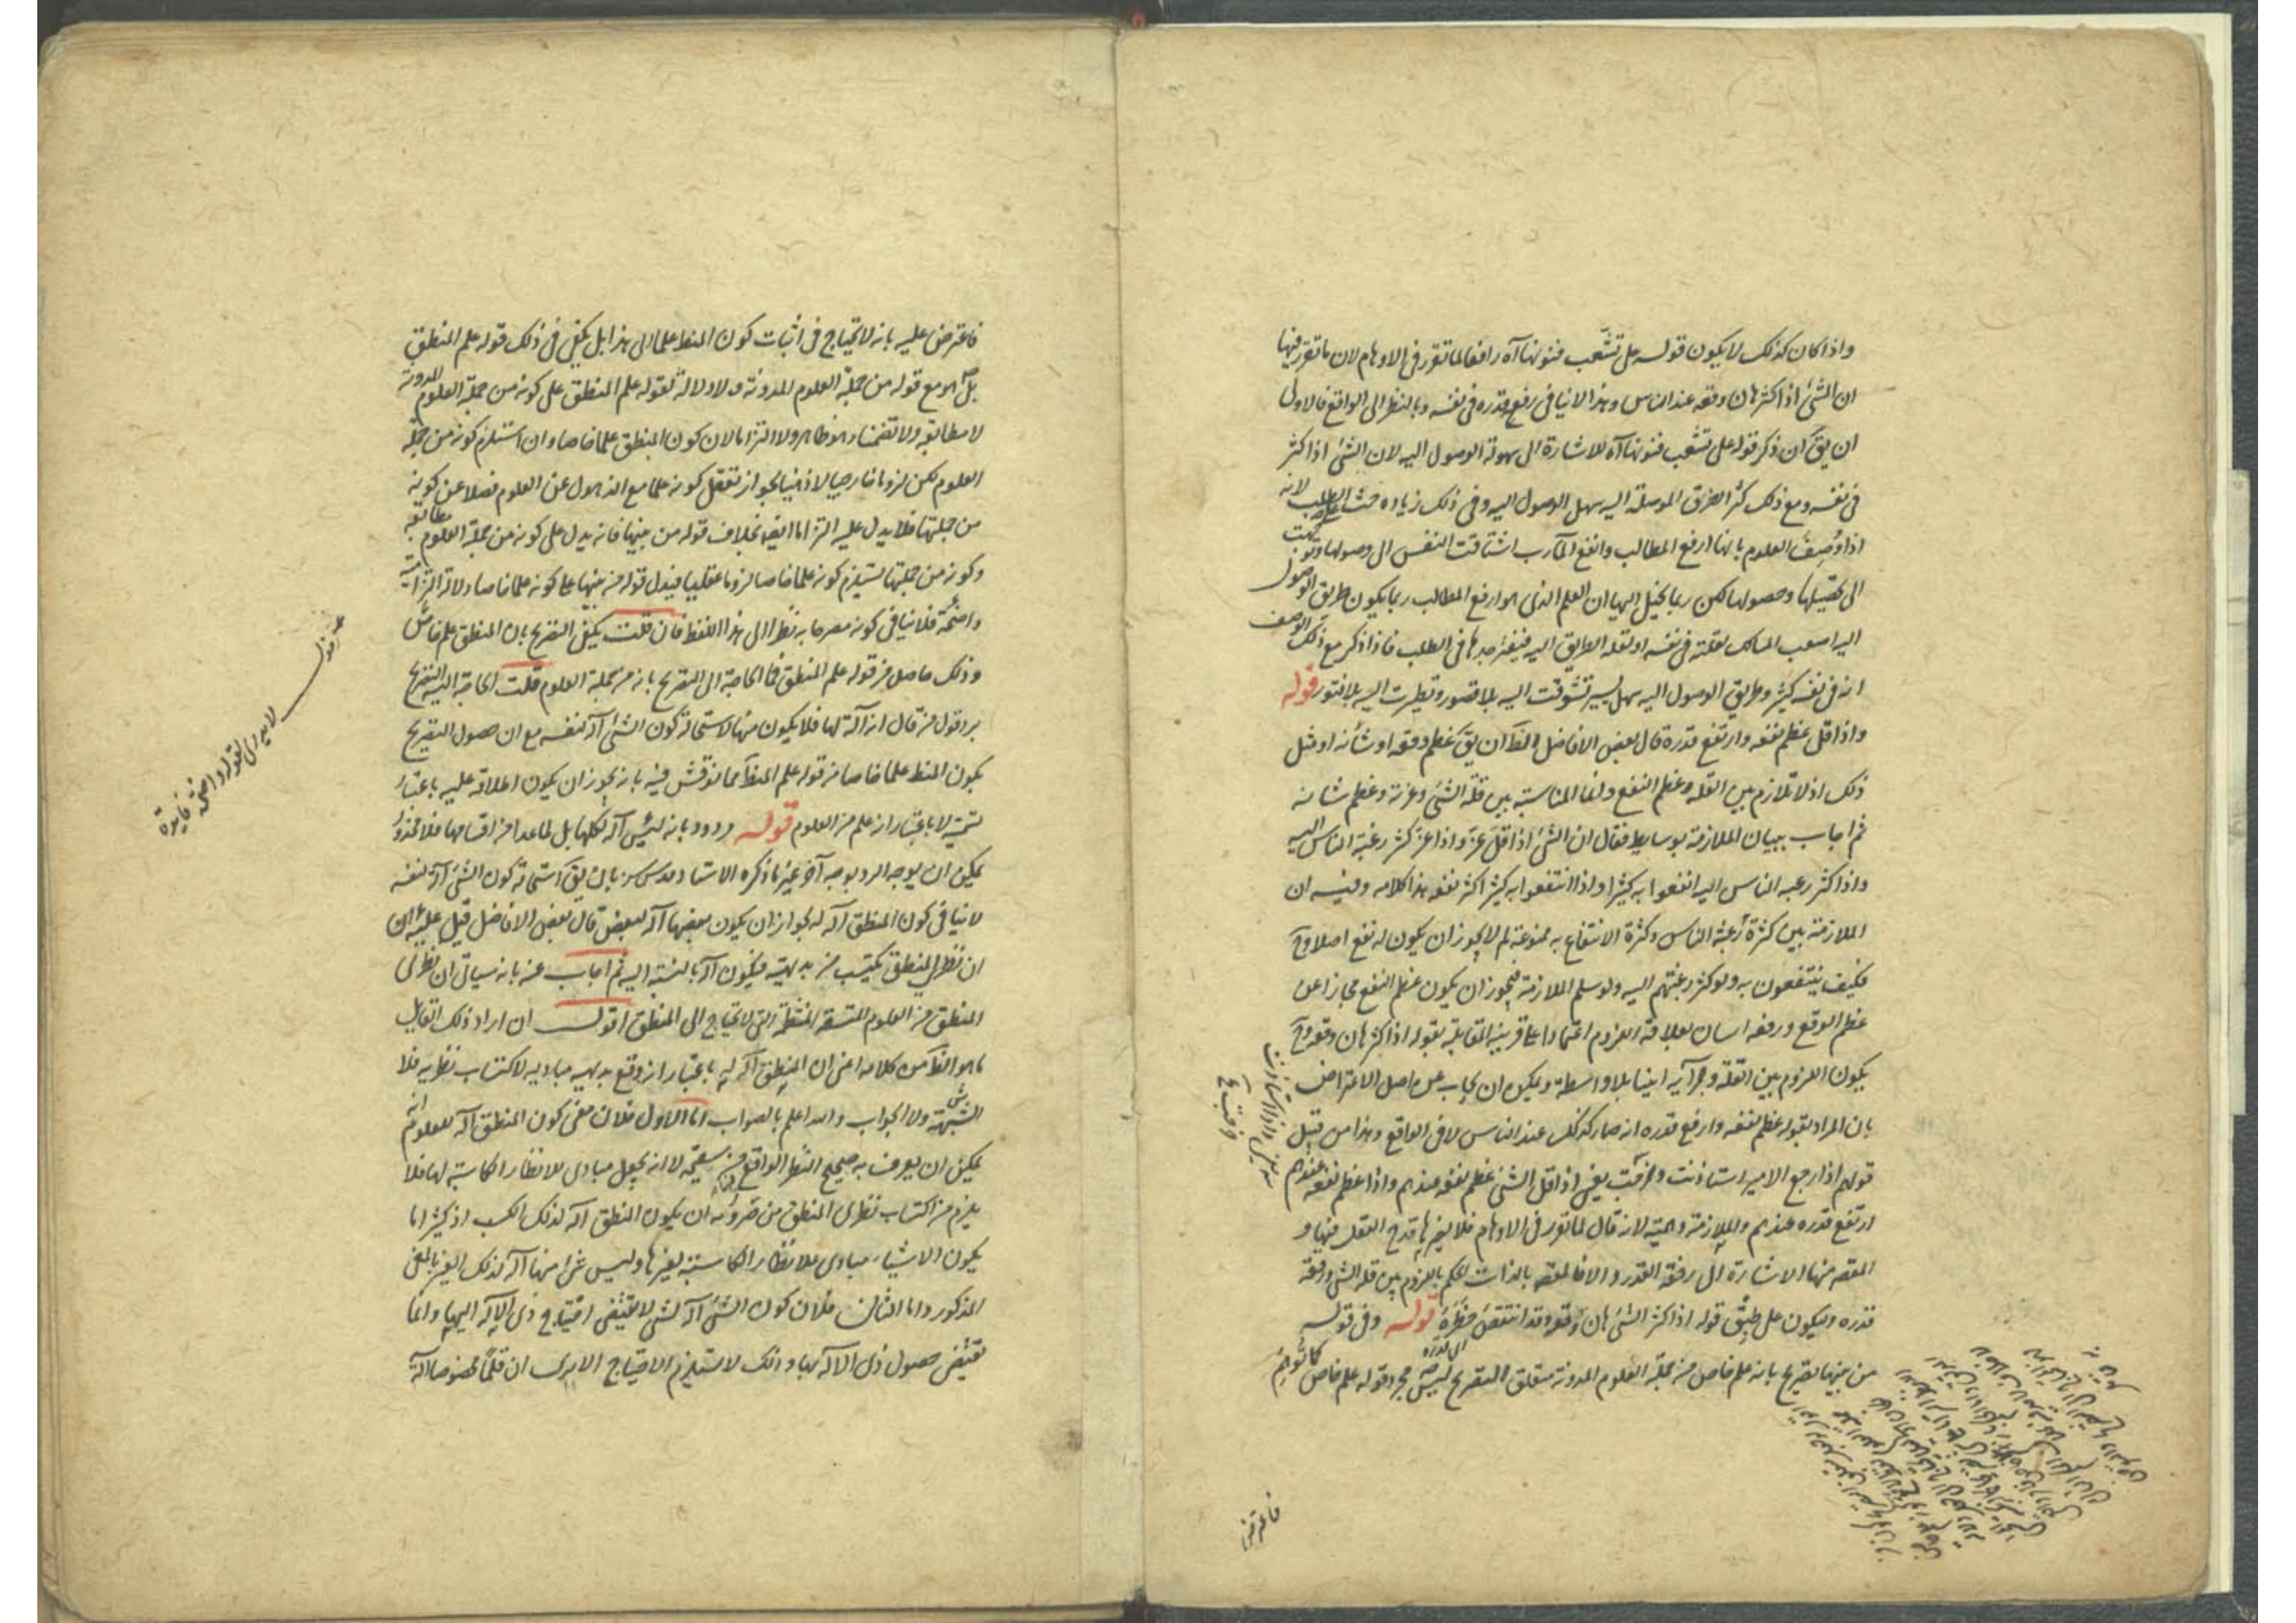 واذا كان كذلك لا يكون قوله على تشعب فنونها آه رافعا لما تقرر فى الاوهام لان ما تقرر فيها
ان الشئ اذا كثر هان وقعه عند الناس وهذا لا ينافى رفع قدره فى نفسه وبالنظر الى الواقع فالاولى
ان يق ان ذكر قوله على تشعب فنونها آه للاشارة الى سهولة الوصول اليه لان الشئ اذا كثر
فى نفسه ومع ذلك كثر الطرق الموصلة اليه سهل الوصول اليه وفى ذلك زيادة حث على الطلب لانه
اذا وصف العلوم بانها ارفع المطالب وانفع المآرب اشتاقت النفس الى وصولها وتوجهت
الى تحصيلها وحصولها لكن ربما يخيل اليها ان العلم الذى هو ارفع المطالب ربما يكون طريق الوصول
اليه اصعب المسالك لقلته فى نفسه او لقلة الطريق اليه فيفتر جدها فى الطلب فاذا ذكر مع ذلك الوصف
انه فى نفسه كثير وطريق الوصول اليه سهل يسير تشوقت اليه بلا قصور ونظرت اليه بلا فتور قوله
واذا قل عظم نفعه وارتفع قدره قال بعض الافاضل الظ ان يق عظم وقعه او شأنه او مثل
ذلك اذ لا تلازم بين القلة وعظم النفع وانما المناسبة بين قلة الشئ وعزته وعظم شانه
ثم اجاب ببيان الملازمة بوسايط فقال ان الشئ اذا قل عز واذا عز كثر رغبة الناس اليه
واذا كثر رغبة الناس اليه انتفعوا به كثيرا واذا انتفعوا به كثيرا كثر نفعه هذا كلامه وفيه ان
الملازمة بين كثرة رغبة الناس وكثرة الانتفاع به ممنوعة لم لا يجوز ان يكون له نفع اصلا وح
فكيف ينتفعون به ولو كثر رغبتهم اليه ولو سلم الملازمة فيجوز ان يكون عظم النفع مجازا عن
عظم الوقع ورفعة الشان بعلاقة اللزوم اعتمادا على قرينة المقابلة بقوله اذا كثر هان وقعه وح
يكون اللزوم بين القلة وجزائه ايضا بلا واسطة ويمكن ان يجاب عن اصل الاعتراض
بان المراد بقوله عظم نفعه وارتفع قدره انه صار كذلك عند الناس لا فى الواقع وهذا من قبيل
قولهم اذا رجع الامير استاذنت وخرجت يعنى اذا قل الشئ عظم نفعه عندهم واذا عظم نفعه عندهم
ارتفع قدره عندهم والملازمة وهمية لانه قال لما تقرر فى الاوهام فلا يضرها قدح العقل فيها و
المقصود منها الاشارة الى رفعة القدر والا فالمقصود بالذات الحكم باللزوم بين قلة الشئ ورفعة
قدره وليكون على طبق قوله اذا كثر الشئ هان وقعه وقد انتقص خطره قوله وفى قوله
من بينها تصريح بانه علم خاص من جملة العلوم المدونة متعلق التصريح ليس مجرد قوله علم خاص كما توهم
فاعترض
فاعترض عليه بانه لا يحتاج فى اثبات كون المنطق علما الى هذا بل يكفى فى ذلك قوله علم المنطق
بل هو مع قوله من جملة العلوم المدونة ولا دلالة لقوله علم المنطق على كونه من جملة العلوم المدونة
لا مطابقة ولا تضمنا وهو ظاهر ولا التزاما لان كون المنطق علما خاصا وان استلزم كونه من جملة
العلوم لكن لزوما خارجيا لا ذهنيا لجواز تعقل كونه علما مع الذهول عن العلوم فضلا عن كونه
من جملتها فلا يدل عليه التزاما ايضا بخلاف قوله من بينها فانه يدل على كونه من جملة العلوم مطابقة
وكونه من جملتها يستلزم كونه علما خاصا لزوما عقليا فيدل قوله من بينها على كونه علما خاصا دلالة التزامية
واضحة فلا ينافى كونه مصرحا به نظرا الى هذا اللفظ فان قلت يكفى التصريح بان المنطق علم خاص
وذلك حاصل من قوله علم المنطق فما الحاجة الى التصريح بانه من جملة العلوم قلت الحاجة اليه التصريح
برد قول من قال انه آلة لها فلا يكون منها لاستحالة كون الشئ آلة لنفسه مع ان حصول التصريح
بكون المنطق علما خاصا من قوله علم المنطق مما نوقش فيه بانه يجوز ان يكون اطلاقه عليه باعتبار
تسميته لا باعتبار انه علم من العلوم قوله مردود بانه ليس آلة لكلها بل لما عدا من اقسامها فلا محذور
يمكن ان يوجه الرد بوجه آخر غير ما ذكره الاستاد قدس سره بان يق استحالة كون الشئ آلة لنفسه
لا ينافى كون المنطق آلة له لجواز ان يكون بعضها آلة لبعض قال بعض الافاضل قيل عليه ان
ان نظرى المنطق يكتسب من بديهيه فيكون آلة بالنسبة اليه ثم اجاب عنه بانه سياتى ان نظرى
المنطق من العلوم المتسقة المنتظمة التى لا تحتاج الى المنطق اقول ان اراد ذلك القايل
ما هو الظ من كلامه اعنى ان المنطق آلة له باعتبار انه وقع بديهيه مبادى لاكتساب نظريه فلا
الشبهة شئ ولا الجواب والله اعلم بالصواب اما الاول فلان معنى كون المنطق آلة للعلوم انه
يمكن ان يعرف به صحيح النظر الواقع فيه من سقيمه لا انه يجعل مبادى للانظار الكاسبة لها فلا
يلزم من اكتساب نظرى المنطق من ضروريه ان يكون المنطق آلة لذلك الكسب اذ كثيرا ما
يكون الاشياء مبادى للانظار الكاسبة لغيرها وليس شئ منها آلة لذلك الغير بالمعنى
المذكور واما الثانى فلان كون الشئ آلة لشئ لا يقتضى احتياج ذى الآلة اليها وانما
يقتضى حصول ذى الآلة بها وذلك لا يستلزم الاحتياج الا يرى ان قلما مخصوصا آلة